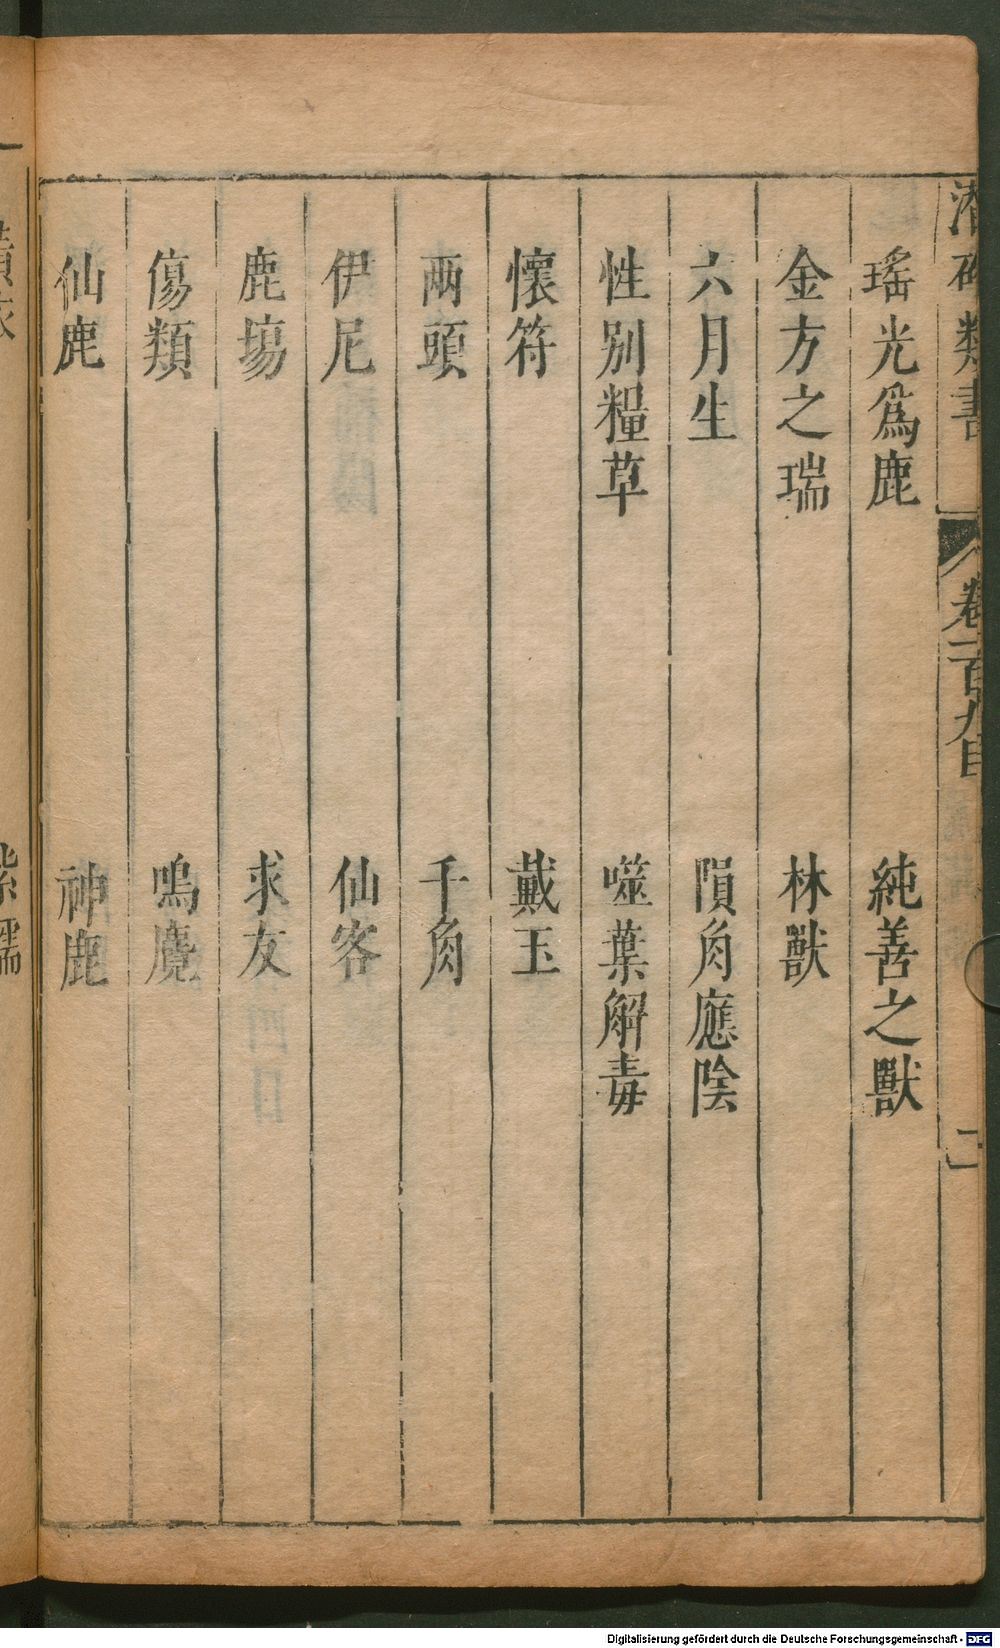 潛確類書 卷一百九目 二
瑤光爲鹿 純善之獸
金方之瑞 林獸
六月生 隕角應陰
性别糧草 噬葉解毒
懷符 戴玉
两頭 千角
伊尼 仙客
鹿場 求友
傷類 鳴麑
仙鹿 神鹿
Digitalisierung gefördert durch die Deutsche Forschungsgemeinschaft - DFG